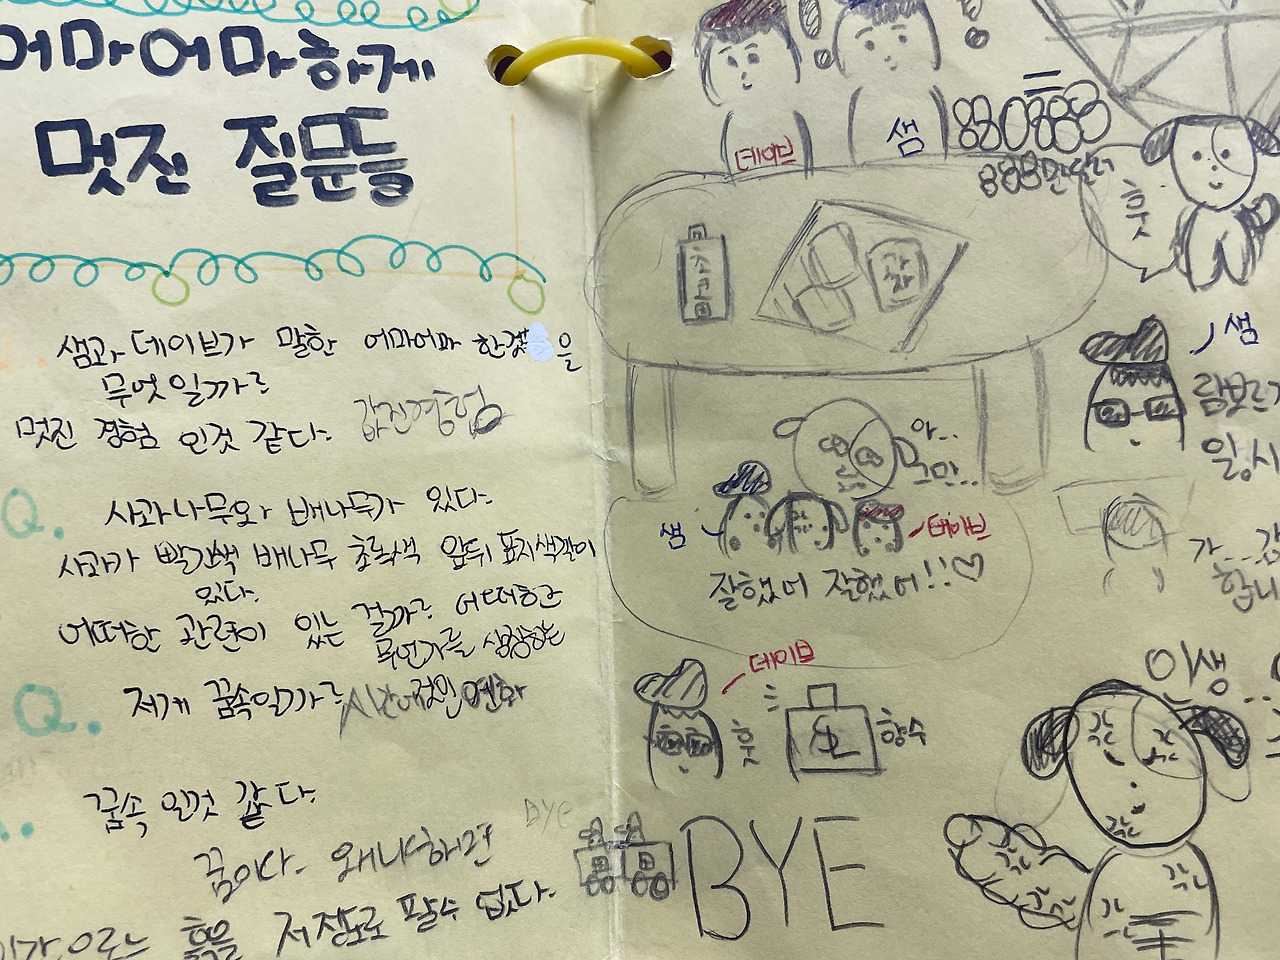 어마어마하게
멋진 질문들
샘과 데이브가 말한 어마어마 한것을
무엇일까?
멋진 경험 인것 같다.
값진경험
Q.
사과나무와 배나무가 있다.
사과가 빨간색 배나무 초록색 앞뒤 표지색깔이
있다.
어떠한 관련이 있는 걸까? 어떠한
무언가를 상징하는
Q.
저게 꿈속일까?
꿈속 일것 같다.
꿈이다. 왜냐하면
흙을 저정도로 팔수 없다.
데이브
샘
888만
훗
과자
샘
아..
그만..
샘
데이브
잘했어 잘했어!!♡
데이브
훗
향수
BYE
BYE
이생